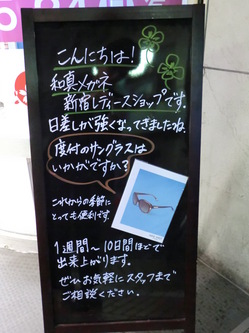 こんにちは!
和真メガネ
新宿レディースショップです。
日差しが強くなってきましたね。
度付のサングラスは
いかがですか?
これからの季節に
とっても便利です。
1週間〜10日間ほどで
出来上がります。
ぜひお気軽にスタッフまで
ご相談ください。